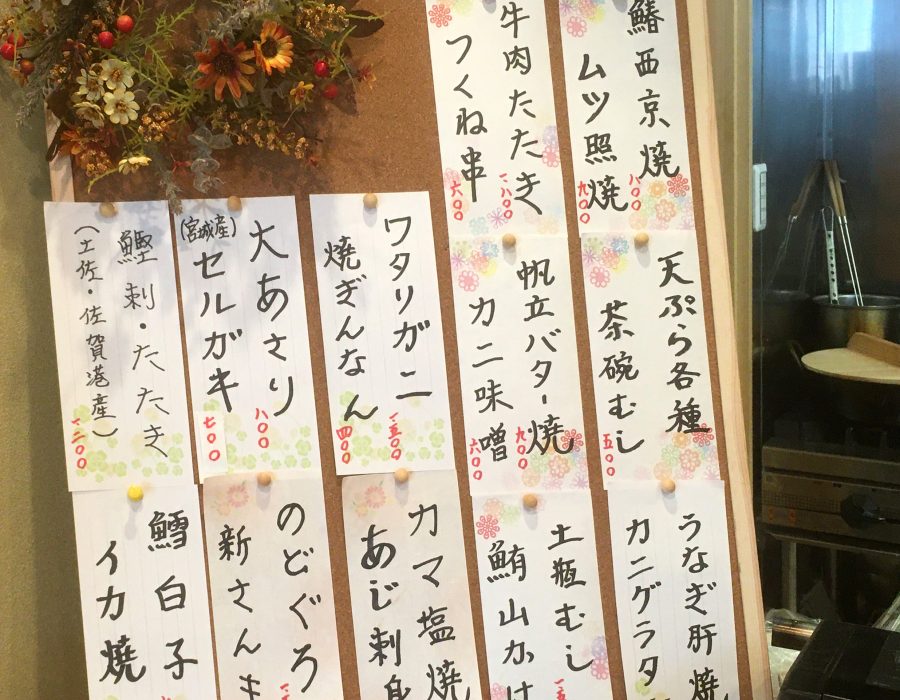 鰆西京焼
八〇〇
ムツ照焼
九〇〇
牛肉たたき
一、八〇〇
つくね串
六〇〇
天ぷら各種
茶碗むし
五〇〇
帆立バター焼
九〇〇
カニ味噌
六〇〇
ワタリガニ
一、五〇〇
焼ぎんなん
四〇〇
大あさり
八〇〇
(宮城産)
セルガキ
七〇〇
鰹刺・たたき
(土佐・佐賀港産)
一、二〇〇
うなぎ肝焼
カニグラタ
土瓶むし
鮪山かけ
カマ塩焼
あじ刺身
のどぐろ
新さんま
鱈白子
イカ焼